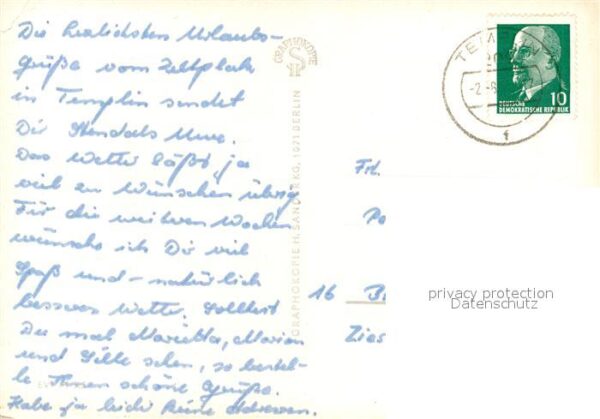 Die herzlichsten Urlaubs-
grüße vom Zeltplatz
in Templin sendet
Dir Stendals
Das Wetter läßt ja
viel zu wünschen übrig
Für die weiteren Wochen
wünsche ich Dir viel
Spaß und - natürlich
besseres Wetter. Solltest
Du mal Marietta, Marion
und Sille sehen, so bestel-
le Ihnen schöne Grüße.
Habe ja leider keine Adressen.
GRAPHOKOPIE
GRAPHOKOPIE H. SANDER KG, 1071 BERLIN
TEMPLIN
-2.-8.
f
10
DEUTSCHE
DEMOKRATISCHE REPUBLIK
Frl.
Po
16 B
Zies
privacy protection
Datenschutz